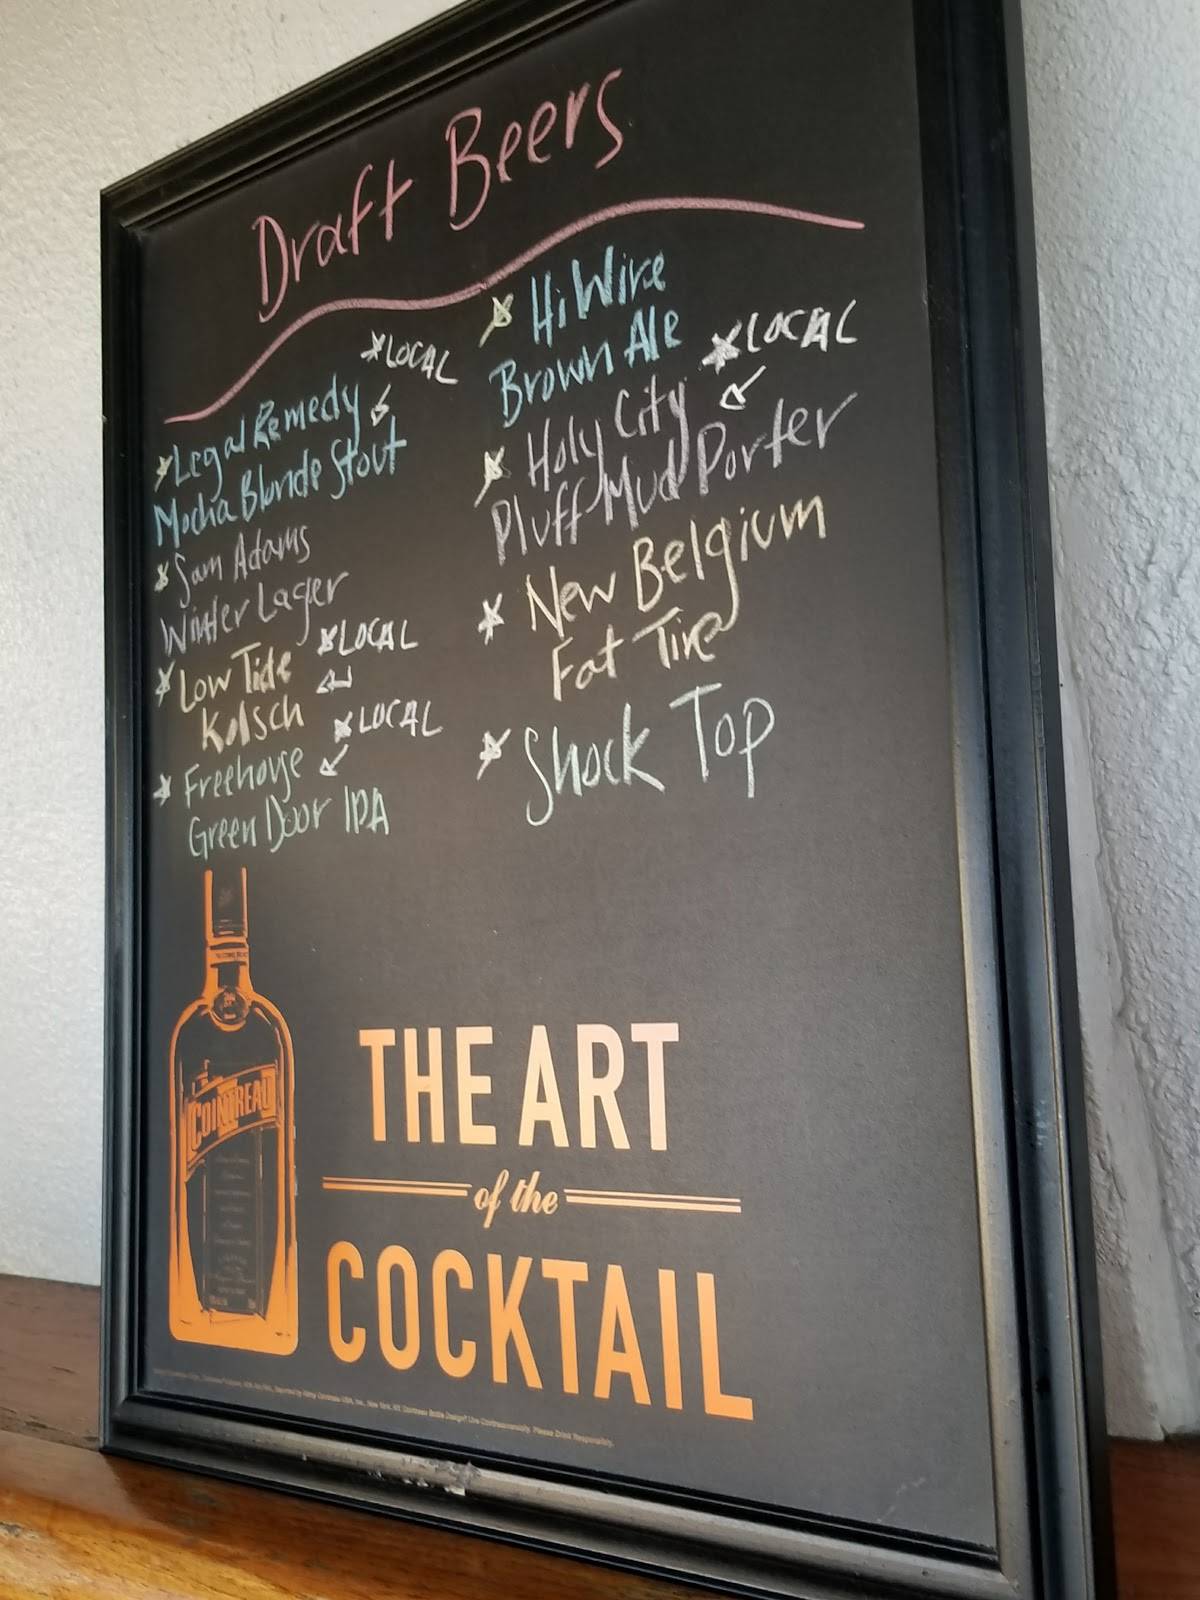 Draft Beers
*LOCAL
*Legal Remedy
Mocha Blonde Stout
*Sam Adams
Winter Lager
*LOCAL
*Low Tide
Kolsch
*LOCAL
*Freehouse
Green Door IPA
*HiWire
Brown Ale
*LOCAL
*Holy City
Pluff Mud Porter
*New Belgium
Fat Tire
*Shock Top
COINTREAU
THE ART
of the
COCKTAIL
Please Drink Responsibly.